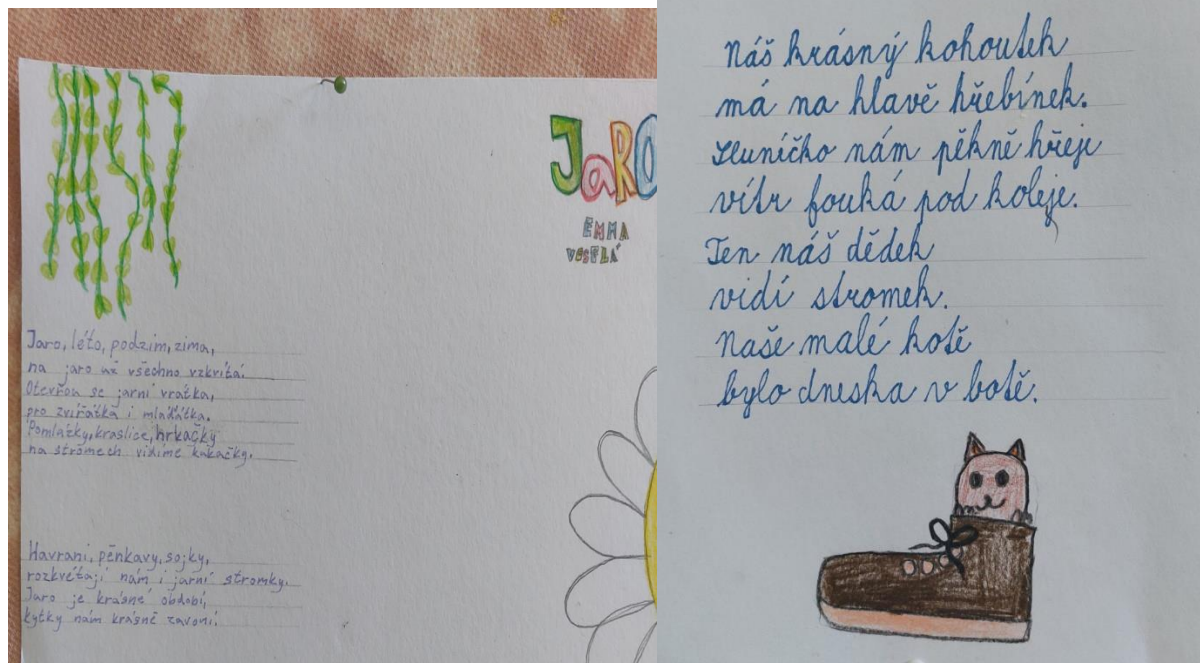 JaRO
EMMA
VESELÁ
Jaro, léto, podzim, zima,
na jaro až všechno vzkvítá.
Otevřou se jarní vrátka,
pro zvířátka i mláďátka.
Pomlázky, kraslice, hrkačky
na stromech vidíme kakačky.
Havrani, pěnkavy, sojky,
rozkvétají nám i jarní stromky.
Jaro je krásné období,
kytky nám krásně zavoní.
Náš krásný kohoutek
má na hlavě hřebínek.
Sluníčko nám pěkně hřeje
vítr fouká pod koleje.
Ten náš dědek
vidí stromek.
Naše malé kotě
bylo dneska v botě.